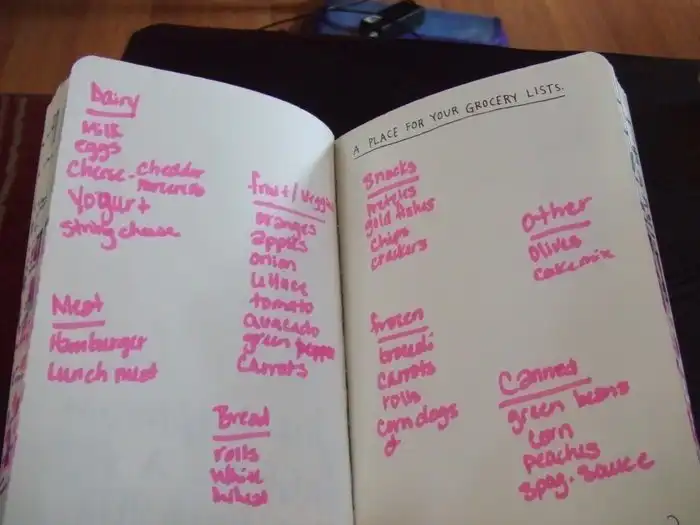 Dairy
Milk
eggs
Cheese - Cheddar
Yogurt
String cheese
Meat
Hamburger
Lunch meat
fruit/veggies
oranges
apples
onion
lettace
tomato
avacado
green pepper
Carrots
Bread
rolls
White
Wheat
A PLACE FOR YOUR GROCERY LISTS.
Snacks
pretzles
gold fishes
Chips
crackers
frozen
Carrots
rolls
corn dogs
Other
Olives
cake mix
Canned
green beans
corn
peaches
Spag. Sauce